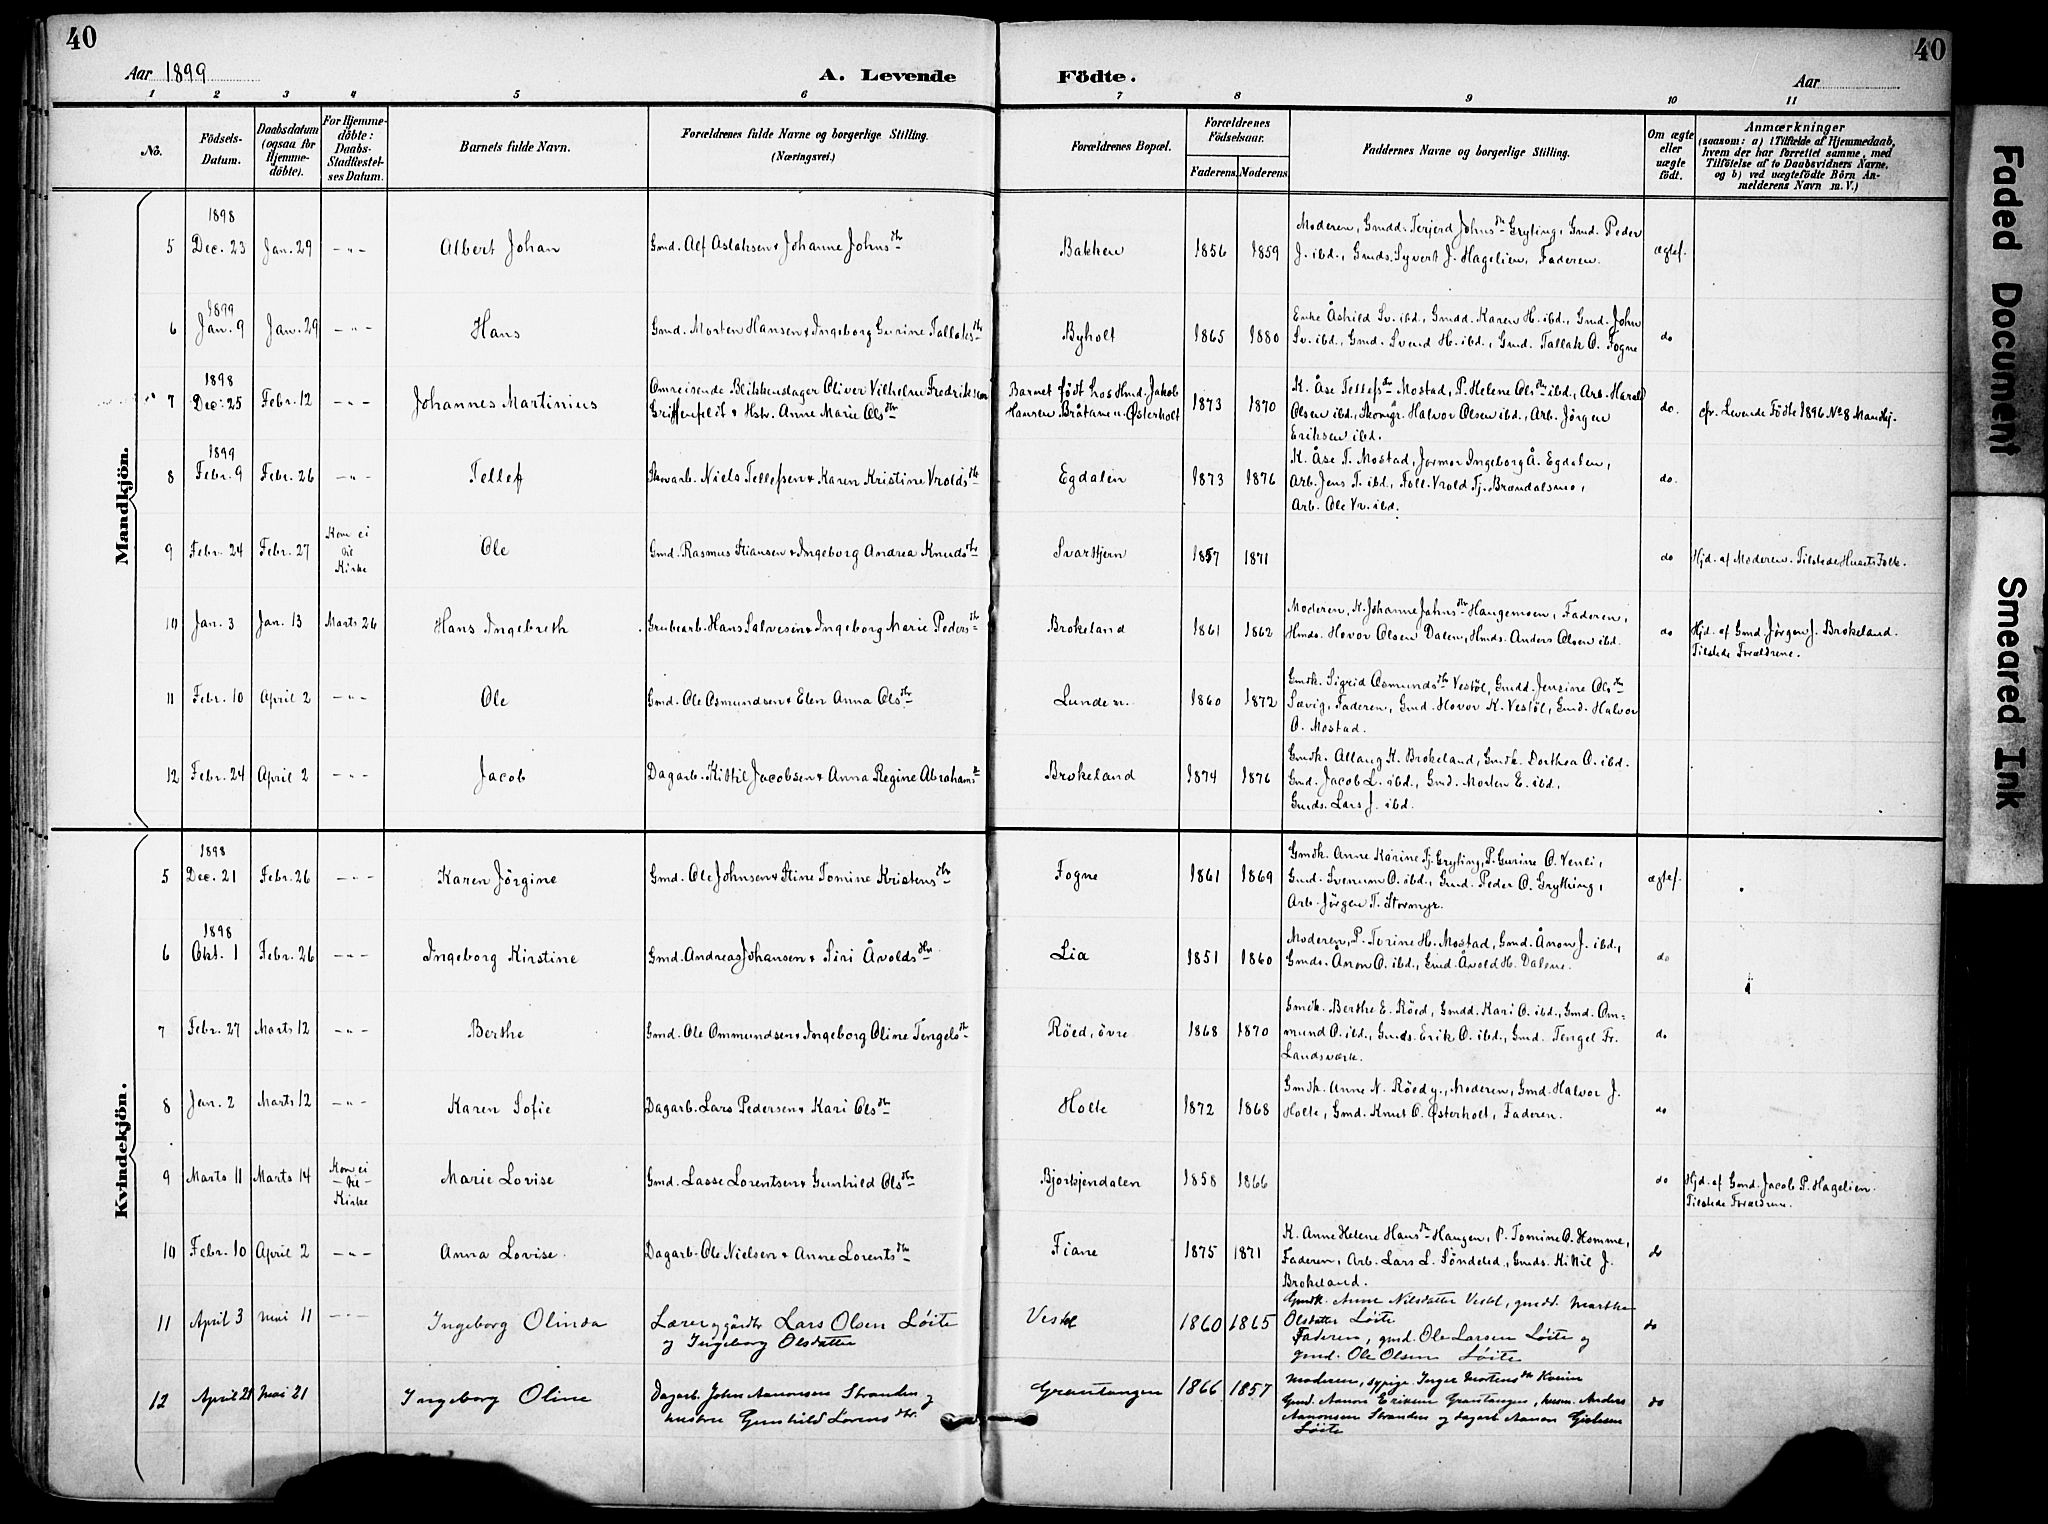 40
40
Aar 1899
A. Levende Födte.
Aar
1 2 3 4 5 6 7 8 9 10 11
No.
Födsels-Datum.
Daabsdatum (ogsaa for Hjemme-döbte).
For Hjemme-döbte: Daabs-Stadfæstel-ses Datum.
Barnets fulde Navn.
Forældrenes fulde Navne og borgerlige Stilling. (Næringsvei.)
Forældrenes Bopæl.
Forældrenes Födselsaar.
Faderens. Moderens.
Faddernes Navne og borgerlige Stilling.
Om ægte eller uægte födt.
Anmærkninger
(saasom: a) i Tilfælde af Hjemmedaab,
hvem der har forrettet samme, med
Tilföielse af to Daabsvidners Navne,
og b) ved uægtefödte Börn An-
melderens Navn m. V.)
Mandkjön.
1898
5 Dec. 23 Jan. 29 - " - Albert Johan Gmd. Alf Aslaksen & Johanne Johnsdtr Bakken 1856 1859 Moderen, Gmdd. Terjerd Johnsdtr Gryting, Gmd. Peder
J. ibd., Gmds. Syvert J. Hagelien, Faderen. ægtef.
1899
6 Jan. 9 Jan. 29 - " - Hans Gmd. Morten Hansen & Ingeborg Gurine Tallaksdtr Byholt 1865 1880 Enke Åshild Sv. ibd., Gmdd. Karen H. ibd., Gmd. John
Sv. ibd., Gmd. Svend H. ibd., Gmd. Tallak O. Fogne do
1898
7 Dec. 25 Febr. 12 - " - Johannes Martinius Omreisende Blikkenslager Oliver Vilhelm Fredriksen
Griffenfeldt & Hstr. Anne Marie Olsdtr Barnet født hos Hmd. Jakob
Hansen Bråtane u. Østerholt 1873 1870 K. Åse Tellefsdtr Mostad, P. Helene Olsdtr ibd., Arb. Harald
Olsen ibd., Skomgr. Halvor Olsen ibd., Arb. Jörgen
Eriksen ibd. do. cfr. Levende Födte 1896 No 8 Mandkj.
1899
8 Febr. 9 Febr. 26 - " - Tellef Skovarb. Niels Tellefsen & Karen Kristine Vroldsdtr Egdalen 1873 1876 K. Åse T. Mostad, Jormor Ingeborg Å. Egdalen,
Arb. Jens T. ibd., Foll. Vrold Tj. Brændalsmo,
Arb. Ole Vr. ibd. do.
9 Febr. 24 Febr. 27 Kom ei til Kirke Ole Gmd. Rasmus Stiansen & Ingeborg Andrea Knudsdtr Svartkjern 1857 1871 do Hjd. af Moderen. Tilstede Husets Folk.
10 Jan. 3 Jan. 13 Marts 26 Hans Ingebreth Grubearb. Hans Salvesen & Ingeborg Marie Pedersdtr Brokeland 1861 1862 Moderen, K. Johanne Johnsdtr Haugemoen, Faderen,
Hmds. Hovor Olsen Dalen, Hmds. Anders Olsen ibd. do Hjd. af Gmd. Jörgen J. Brokeland.
Tilstede Forældrene.
11 Febr. 10 April 2 - " - Ole Gmd. Ole Osmundsen & Elen Anna Olsdtr Lunden 1860 1872 Gmdk. Sigrid Osmundsdtr Vestöl, Gmdd. Jensine Olsdtr
Sævig, Faderen, Gmd. Hovor K. Vestöl, Gmd. Halvor
O. Mostad.
12 Febr. 24 April 2 - " - Jacob Dagarb. Kittil Jacobsen & Anna Regine Abrahamsdtr Brokeland 1874 1876 Gmdk. Allaug K. Brokeland, Gmdk. Dorthea O. ibd.
Gmd. Jacob L. ibd., Gmd. Morten E. ibd.,
Gmds. Lars J. ibd.
Kvindekjön.
1898
5 Dec. 21 Febr. 26 - " - Karen Jörgine Gmd. Ole Johnsen & Stine Tomine Kristensdtr Fogne 1861 1869 Gmdk. Anne Karine Tj. Gryting, P. Gurine O. Venli,
Gmd. Svenum O. ibd., Gmd. Peder O. Gryting,
Arb. Jörgen T. Stormyr. ægtef.
1898
6 Okt. 1 Febr. 26 - " - Ingeborg Kirstine Gmd. Andreas Johansen & Siri Åvoldsdtr Lia 1851 1860 Moderen, P. Torine H. Mostad, Gmd. Ånon J. ibd.,
Gmds. Ånon O. ibd., Gmd. Åvold H. Dalene. do
7 Febr. 27 Marts 12 - " - Berthe Gmd. Ole Ommundsen & Ingeborg Oline Tengelsdtr Röed, övre 1868 1870 Gmdk. Berthe E. Röed, Gmdd. Kari O. ibd., Gmd. Om-
mund O. ibd., Gmds. Erik O. ibd., Gmd. Tengel Fr.
Landsværk. do
8 Jan. 2 Marts 12 - " - Karen Sofie Dagarb. Lars Pedersen & Kari Olsdtr Holte 1872 1868 Gmdk. Anne N. Röed y., Moderen, Gmd. Halvor J.
Holte, Gmd. Knut O. Østerholt, Faderen. do
9 Marts 11 Marts 14 Kom ei til Kirke Marie Lovise Gmd. Lasse Lorentsen & Gunhild Olsdtr Bjorkjendalen 1858 1866 do Hjd. af Gmd. Jacob P. Hagelien.
Tilstede Forældrene.
10 Febr. 10 April 2 - " - Anna Lovise. Dagarb. Ole Nielsen & Anne Lorentsdtr Fiane 1875 1871 K. Anne Helene Hansdtr Haugen, P. Tomine O. Homme,
Faderen, Arb. Lars L. Söndeled, Gmds. Kittil J.
Brokeland. do
11 April 3 Mai 11 - " - Ingeborg Olinda Lærer og gårdbr Lars Olsen Löite
og Ingeborg Olsdatter Vestöl 1860 1865 Gmdk. Anne Nilsdatter Vestöl, gmdd. Marthe
Olsdatter Löite
Faderen, gmd. Ole Larsen Löite og
gmd. Ole Olsen Löite do
12 April 21 Mai 21 Ingeborg Oline Dagarb. John Aanonsen Stranden og
hustru Gunhild Lorensdtr. Grautangen 1866 1857 Moderen, sypige Inger Mortensdtr
Gmd. Aanon Eriksen Grautangen, Anders
Aanonsen Stranden og dagarb Aanon Gjelssen
Löite do
Faded Document
Smeared Ink